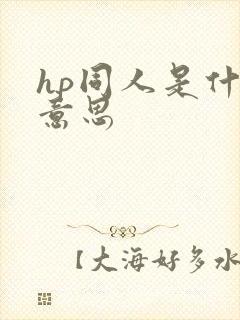 hp同人是什
意思
【大海好多水